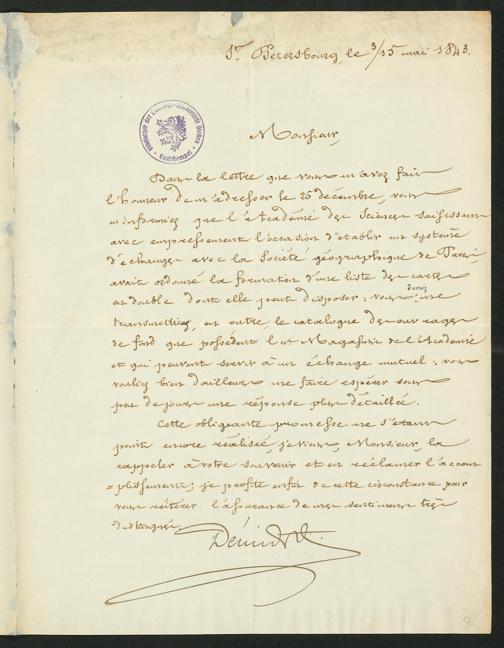 St. Petersbourg, le 3/15 mai 1843.
Monsieur,
Dans la lettre que vous m'avez fait
l'honneur de m'adresser le 25 décembre, vous
m'informiez que l'Académie des Sciences saisissant
avec empressement l'occasion d'établir un système
d'échanges avec la Société géographique de Paris,
avait ordonné la formation d'une liste des cartes
en double dont elle peut disposer; vous deviez me
transmettre, en outre, le catalogue des ouvrages
de fond que possèdent les Magasins de l'Académie
et qui peuvent servir à un échange mutuel; vous
vouliez bien d'ailleurs me faire espérer sous
peu de jours une réponse plus détaillée.
Cette obligeante promesse ne s'étant
point encore réalisée, je viens, Monsieur, la
rappeler à votre souvenir et en réclamer l'accom
=plissement; je profite enfin de cette circonstance pour
vous réitérer l'assurance de mes sentiments très
distingués.